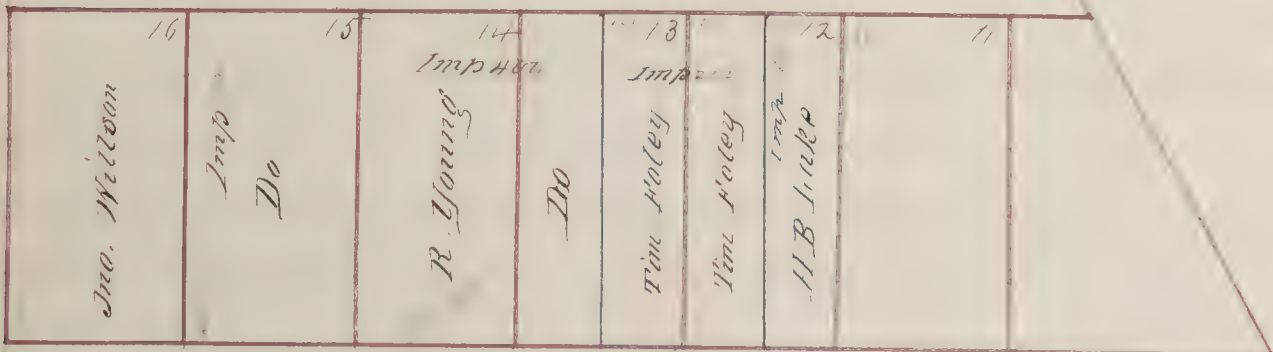 16
Jno. Willson
15
Imp
Do
14
R. Young
Do
13
Imp
Tim Foley
Tim Foley
12
Imp
H B
11